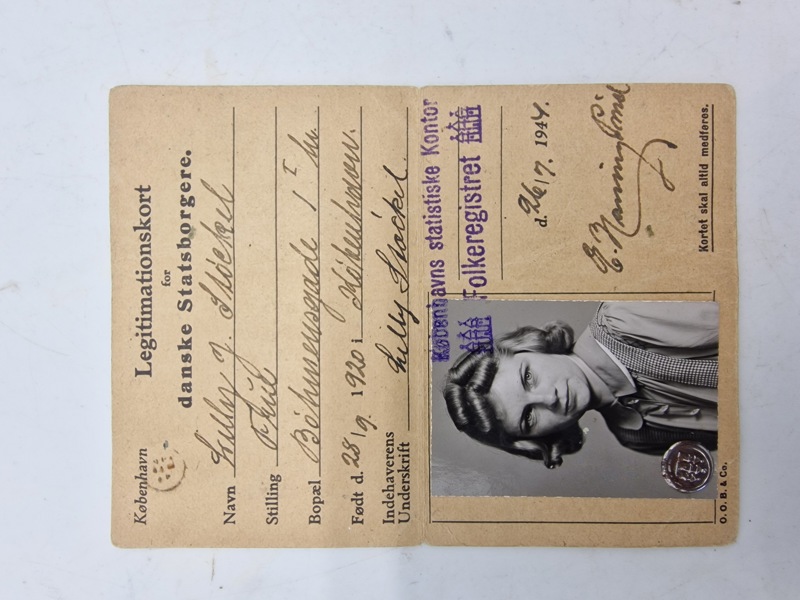 København
Legitimationskort
for
danske Statsborgere.
Navn Lilly J. Støckel
Stilling Frue
Bopæl Bohmensgade 1 I tv.
Født d. 28/9. 1920 i København.
Indehaverens
Underskrift Lilly Støckel.
Københavns statistiske Kontor
Folkeregistret
d. 26/7. 1944.
E.
Kortet skal altid medføres.
O. O. B. & Co.